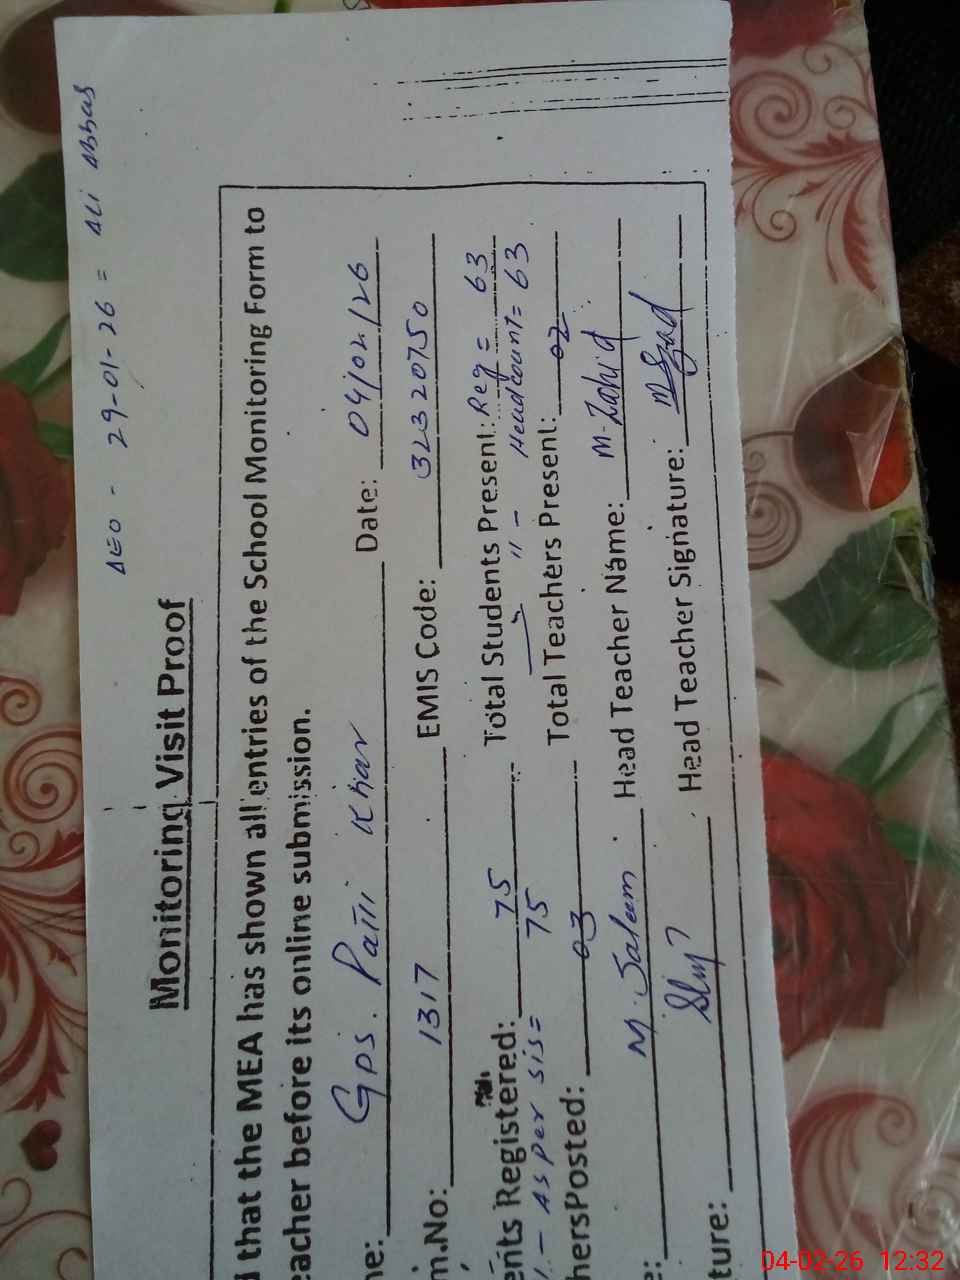 AEO - 29-01-26 = ALi Abbas
Monitoring Visit Proof
d that the MEA has shown all entries of the School Monitoring Form to
eacher before its online submission.
me: GPS. Patti Khar Date: 04/02/26
m.No: 1317 EMIS Code: 32320750
ents Registered: 75 Total Students Present: Reg = 63
- As per SIS = 75 " - Headcount = 63
hersPosted: 03 Total Teachers Present: 02
e: M. Salam Head Teacher Name: M. Zahid
ture: Head Teacher Signature:
04-02-26 12:32